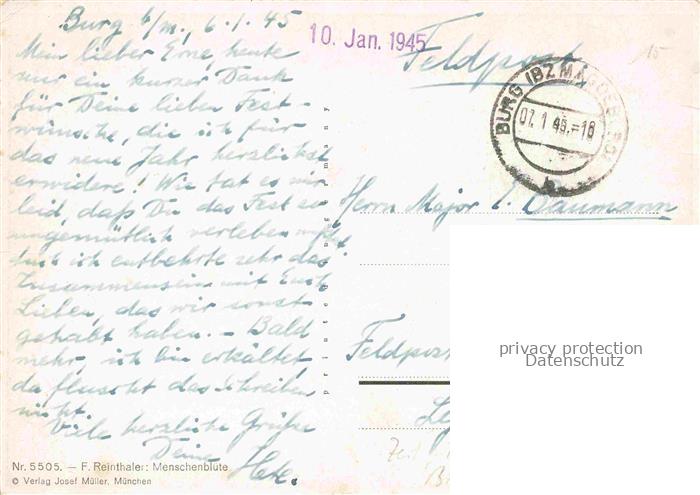 Burg b/m, 6.1.45
Mein lieber Erne, heute
nur ein kurzer Dank
für Deine lieben Fest-
wünsche, die ich für
das neue Jahr herzlichst
erwidere! Wie tat es mir
leid, daß Du das Fest so
ungemütlich verleben mußt
auch ich entbehrte sehr das
Zusammensein mit Euch
Lieben, das wir sonst
gehabt haben. - Bald
mehr, ich bin erkältet
da flutscht das Schreiben
nicht.
Viele herzliche Grüße
Deine
Nr. 5505. — F. Reinthaler: Menschenblüte
© Verlag Josef Müller, München
10. Jan. 1945
Feldpost
BURG (BZ MAGDEB
07.1 45.-18
b
Herrn Major E. Baumann
Feldpost
privacy protection
Datenschutz